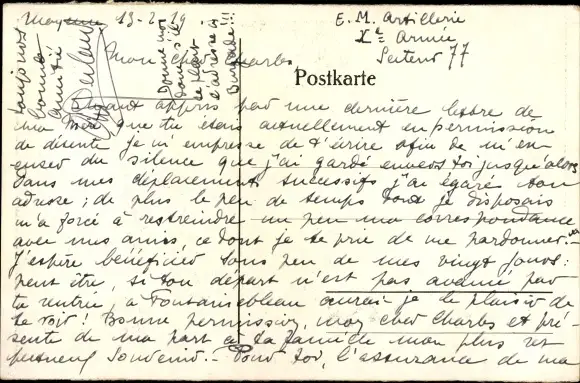 Mayence 13-2-19
E. M. Artillerie
Xe Armée
Secteur 77
Mon cher Charles
Postkarte
Ayant appris par une dernière lettre de
ma mère que tu étais actuellement en permission
de détente je m'empresse de t'écrire afin de m'ex-
cuser du silence que j'ai gardé envers toi jusqu'alors
Dans mes déplacements successifs j'ai égaré ton
adresse ; de plus le peu de temps dont je disposais
m'a forcé à restreindre un peu ma correspondance
avec mes amis, ce dont je te prie de me pardonner.-
J'espère bénéficier sous peu de mes vingt jours :
peut être, si ton départ n'est pas avancé par
ta rentrée, à Fontainebleau aurai-je le plaisir de
te voir ! Bonne permission, mon cher Charles et pré-
sente de ma part à ta famille mon plus res-
pectueux souvenir.- Pour toi, l'assurance de ma
toujours
bonne
amitié
Donne moi
donc s'il
te plaît
l'adresse de
!!!